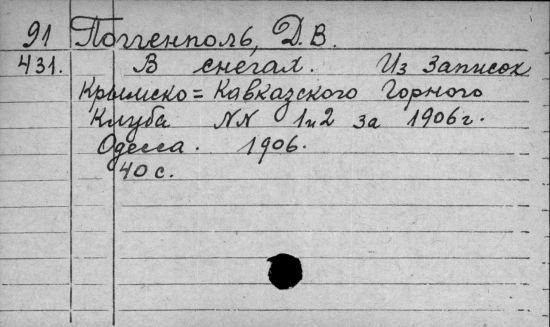 91 Поггенполь, Д. В.
431. В снегах. Из Записок
Крымско=Кавказского Горного
Клуба NN 1и2 за 1906 г.
Одесса. 1906.
40 с.